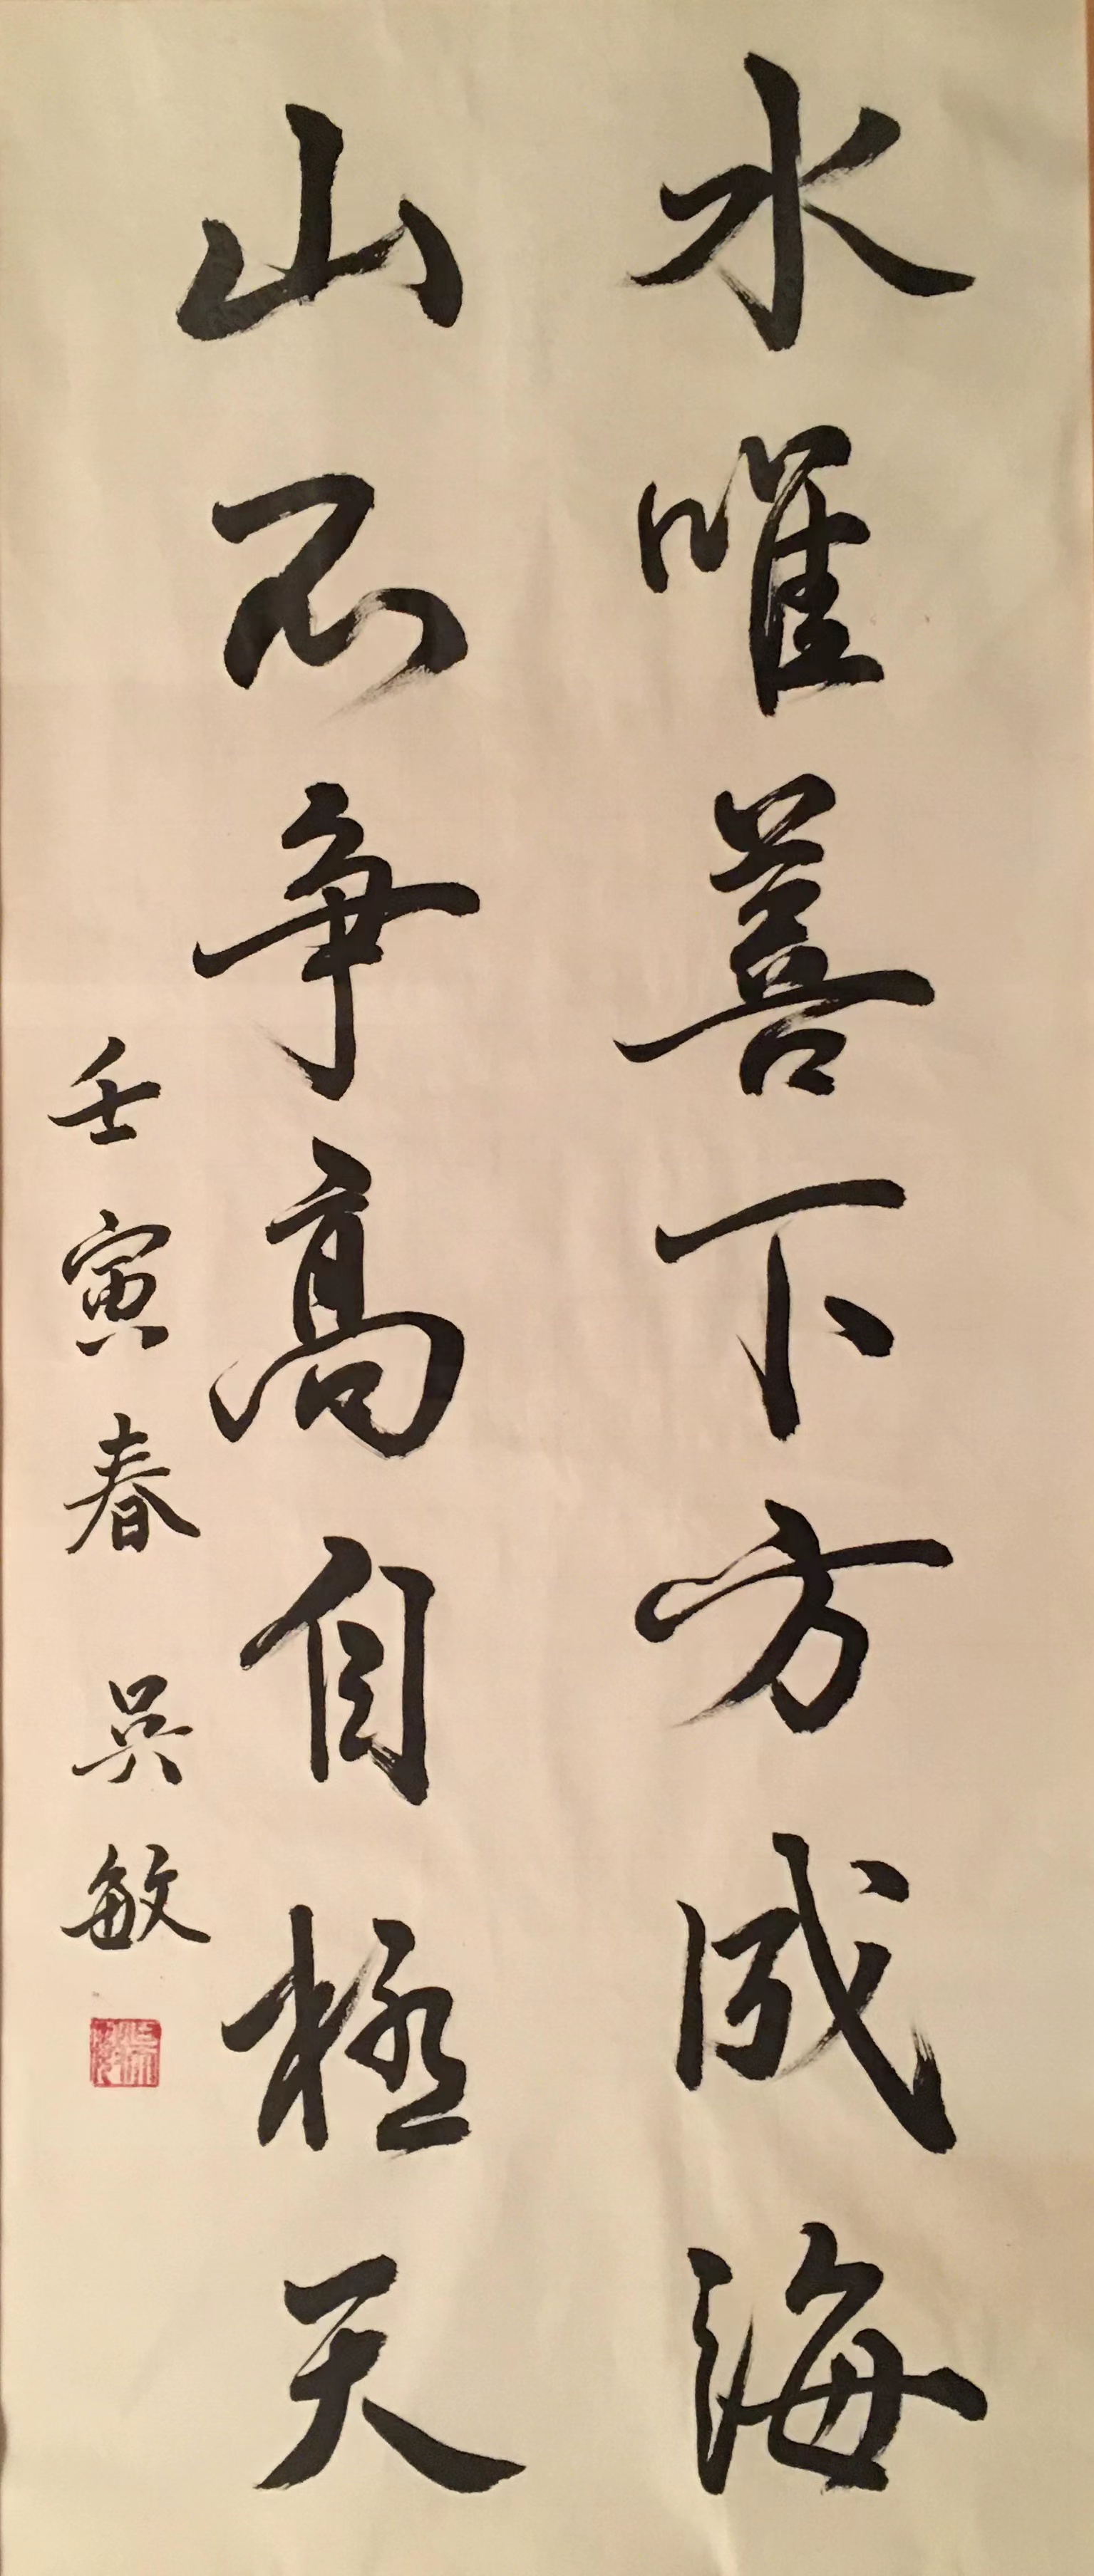 水唯善下方成海
山不争高自極天
壬寅春 吳敏